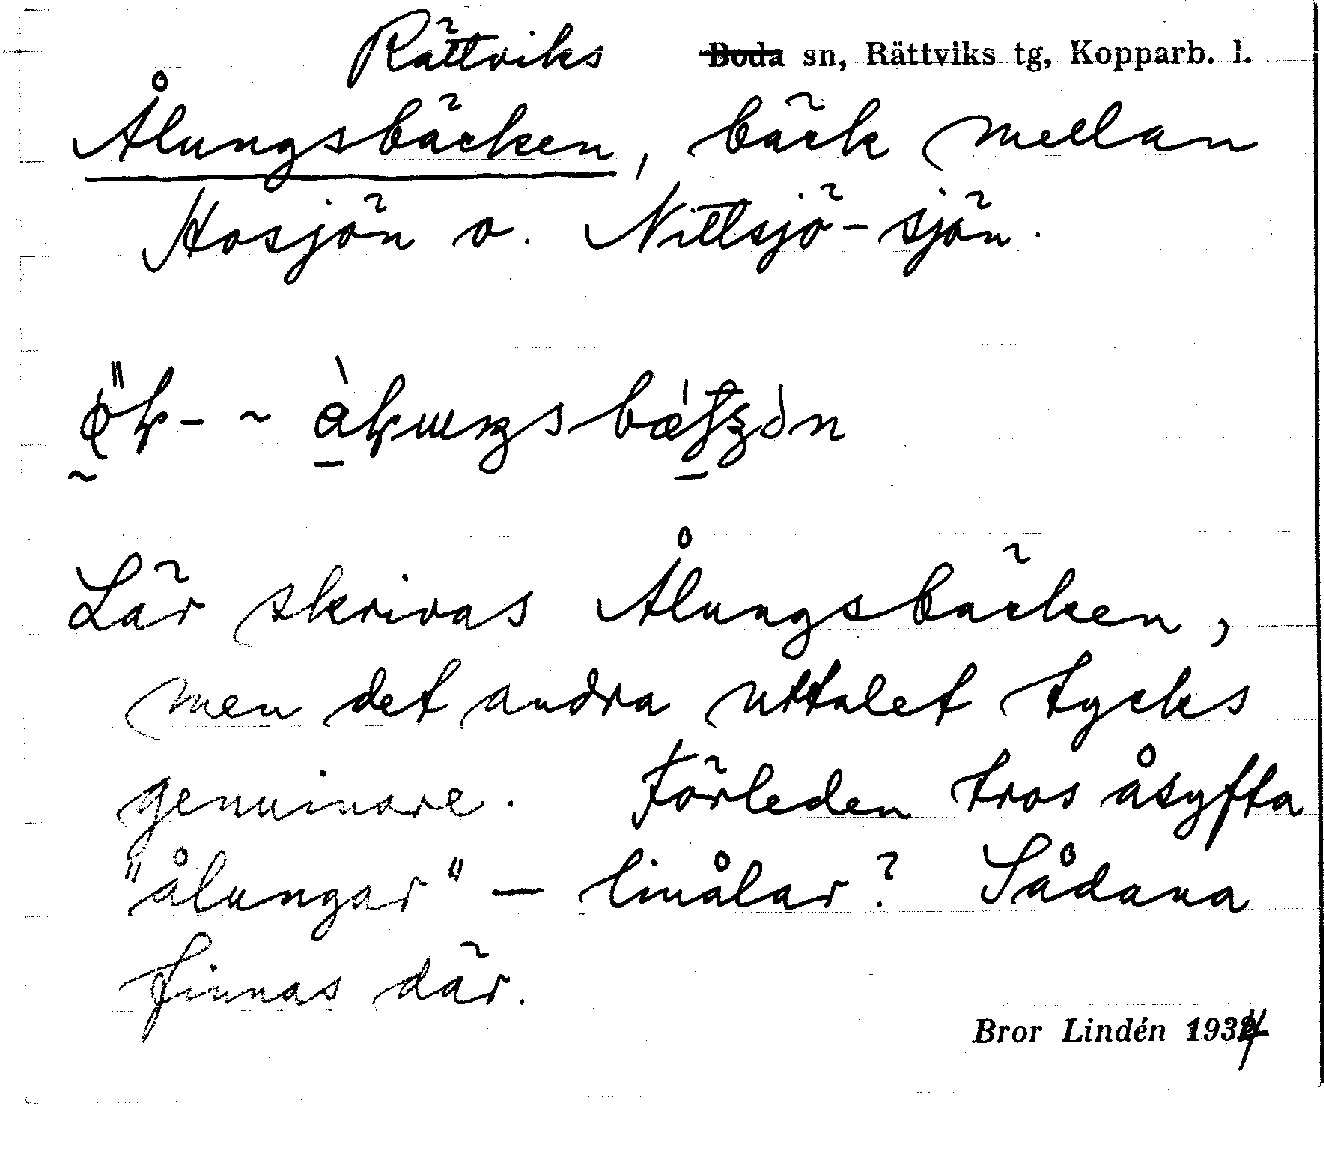 Rättviks Boda sn, Rättviks tg, Kopparb. l.
Ålungsbäcken, bäck mellan
Hosjön o. Nittsjö-sjön.
Lär skrivas Ålungsbäcken,
men det andra uttalet tycks
genuinare. Förleden tros åsyfta
"ålungar" — linålar? Sådana
finnas där.
Bror Lindén 1934